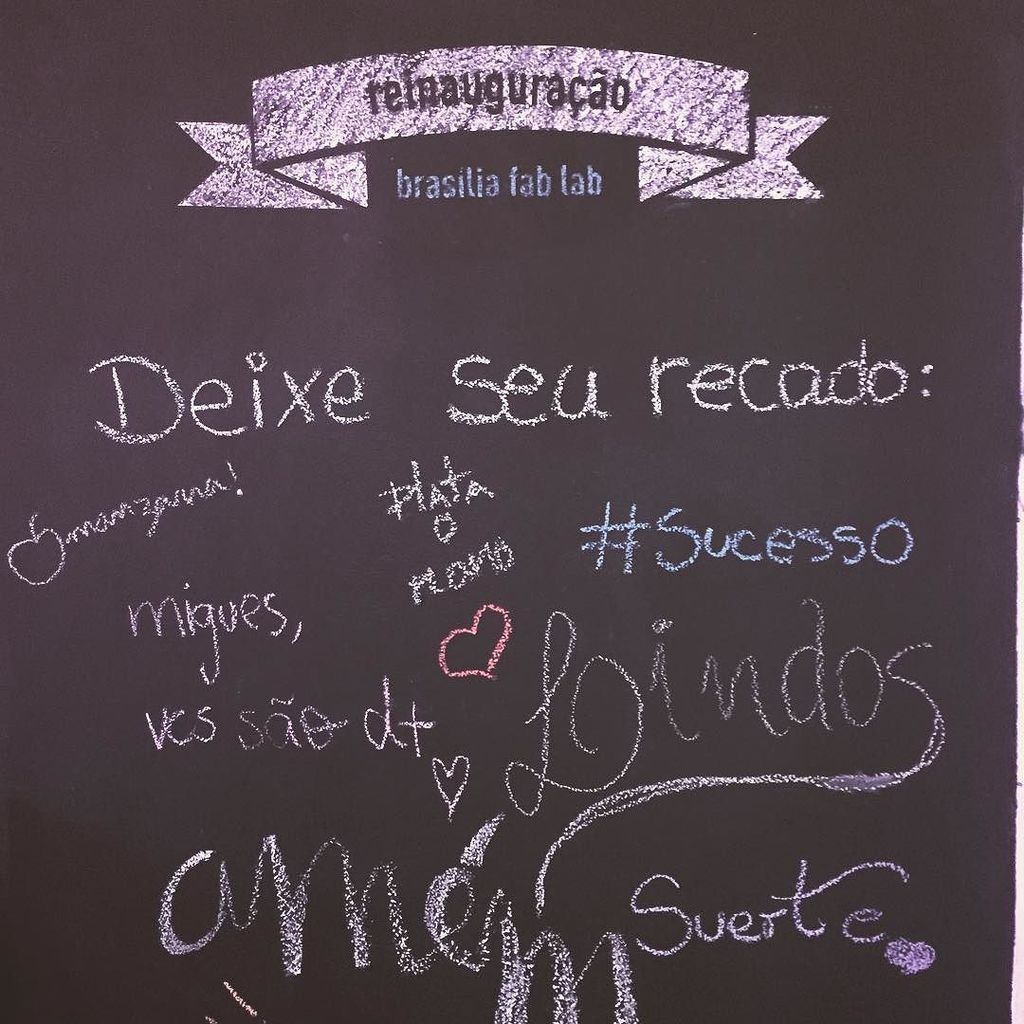 reinauguração
brasília fab lab
Deixe seu recado:
manzana!
plata
o
plomo
#Sucesso
migues,
vcs são d+
Lindos
amém
Suerte